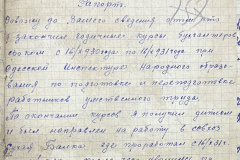 Рапорт.
Довожу до Вашего сведения что я
я закончил годичные курсы бухгалтеров
сроком с 16/X 930 года по 16/X 931 года при
Одесской Инспектуре Народного образо-
вания по подготовке и переподготовке
работников умственного труда.
По окончании курсов я получил диплом
и был направлен на работу в совхоз
Суха Балка где проработал с 16/X 31 г.